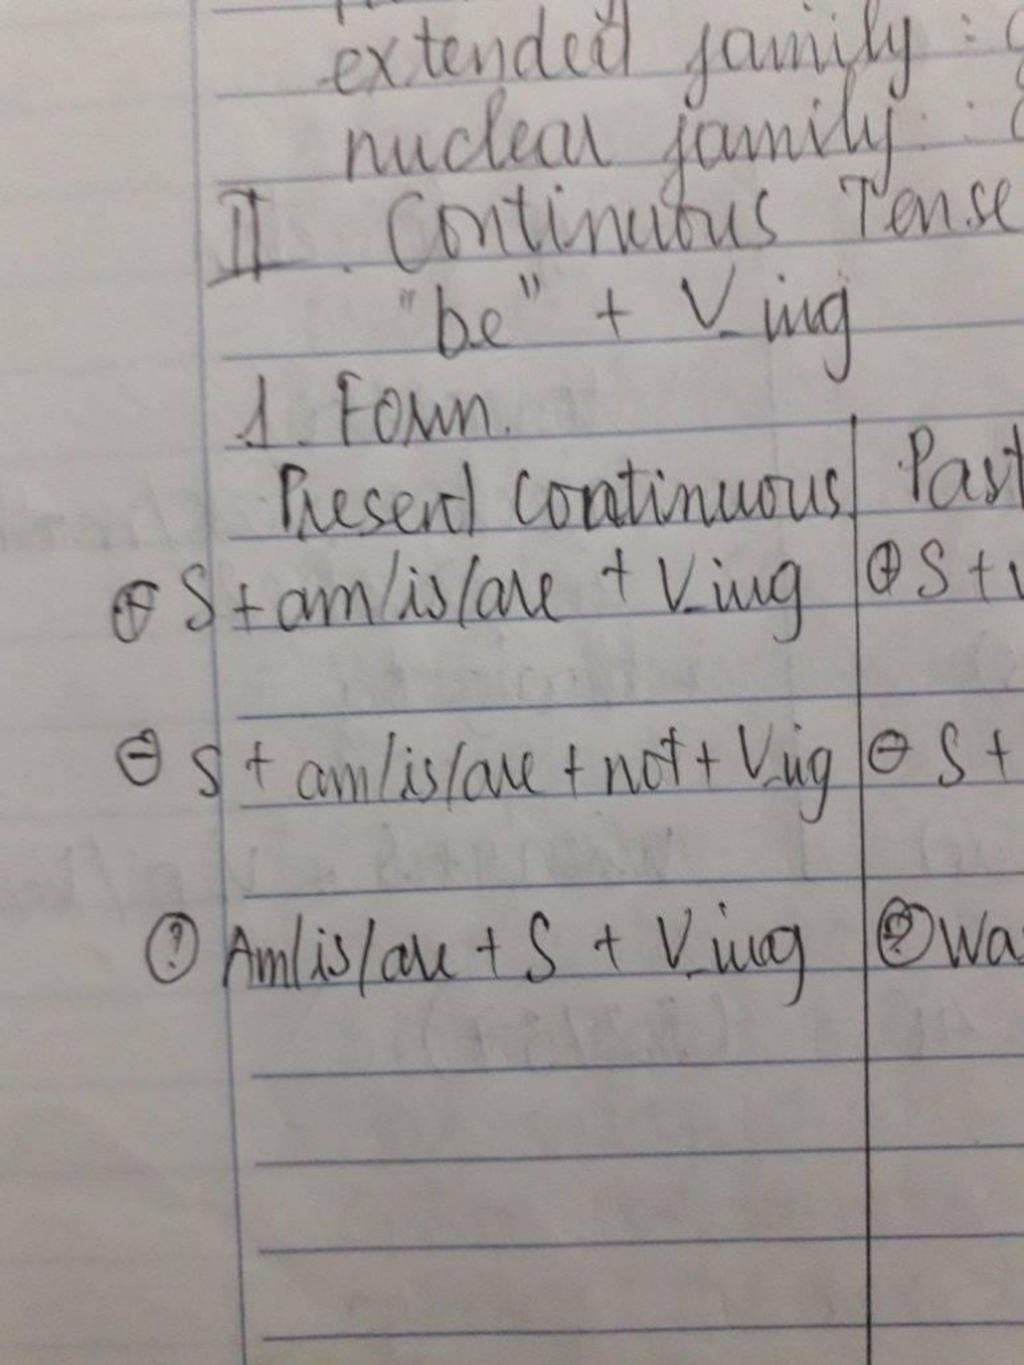 extended family :
nuclear family :
II. Continuous Tense
"be" + V_ing
1. Form.
Present continuous Past
⊕ S + am/is/are + V_ing ⊕ S +
⊖ S + am/is/are + not + V_ing ⊖ S +
? Am/is/are + S + V_ing ? Wa